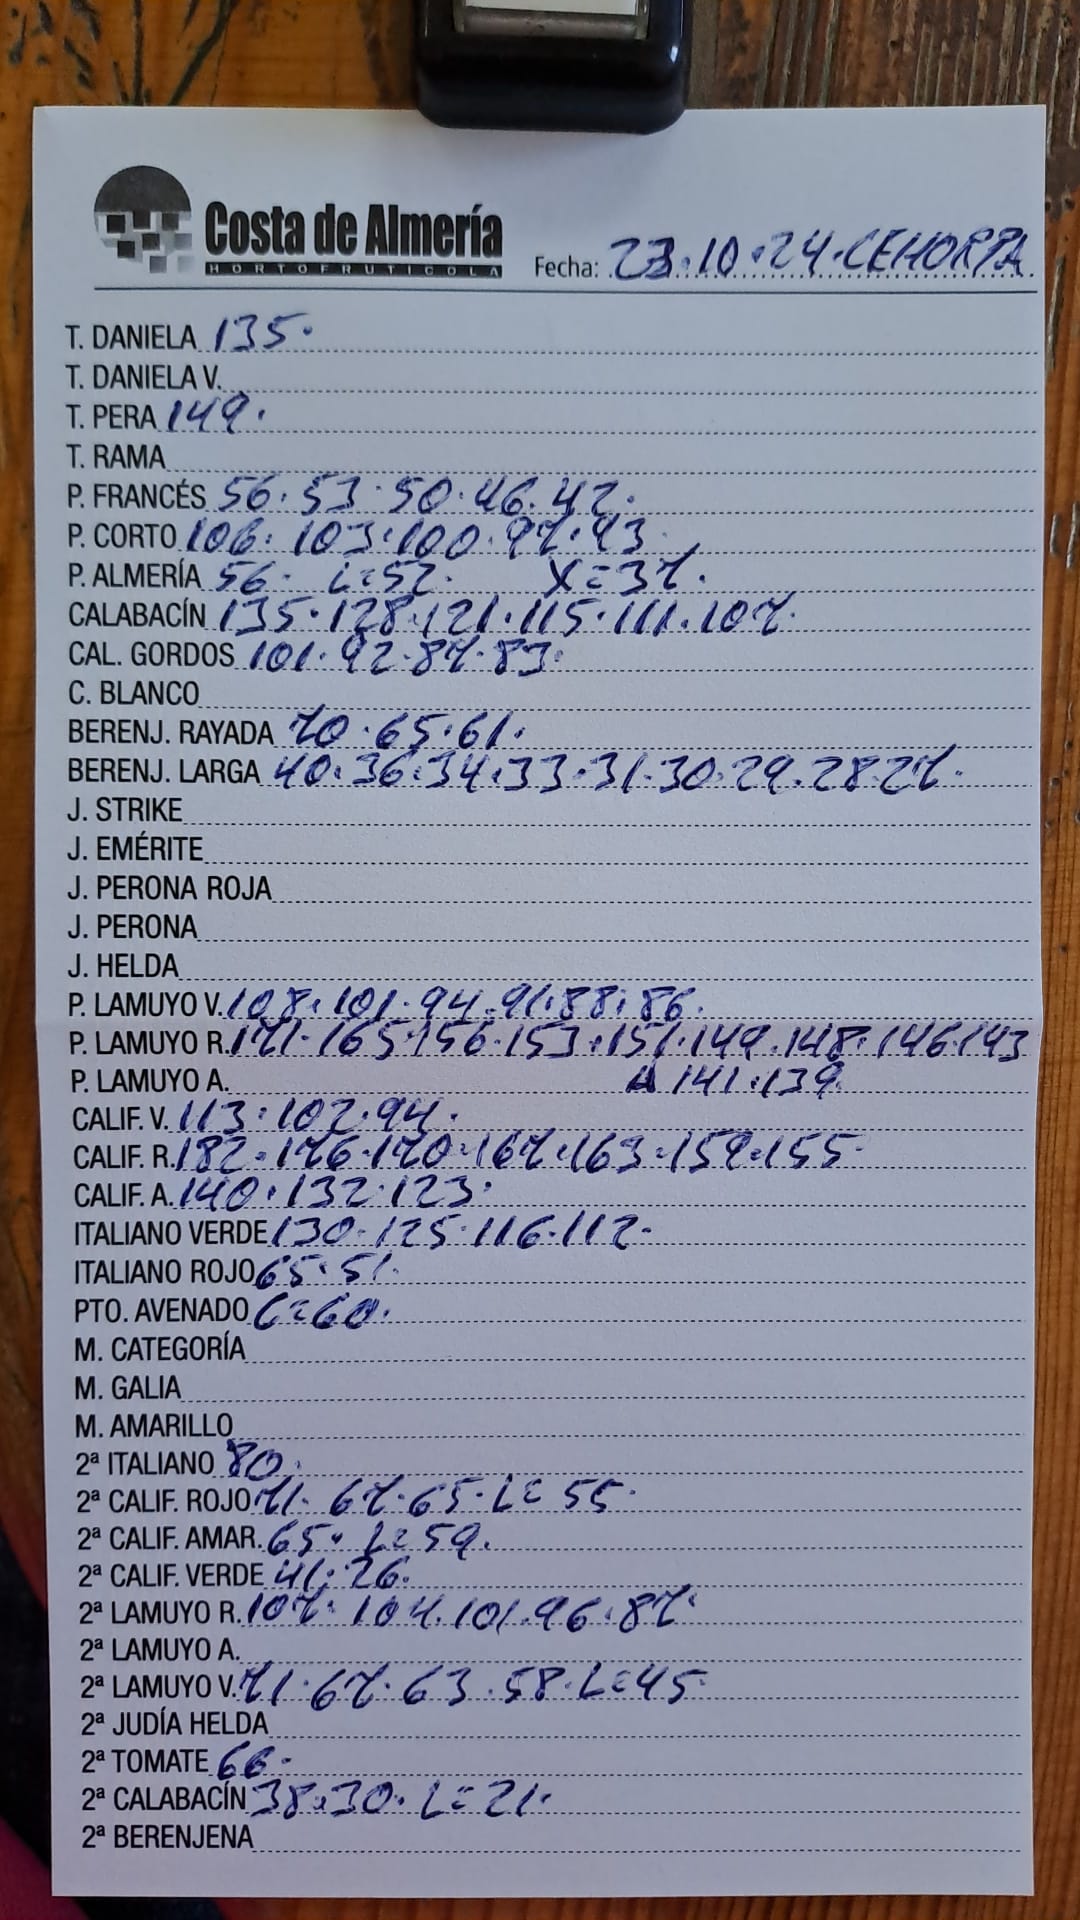 Costa de Almería
HORTOFRUTICOLA
Fecha: 23.10.24.CEHORPA
T. DANIELA 135.
T. DANIELA V.
T. PERA 149.
T. RAMA
P. FRANCÉS 56.53.50.46.42.
P. CORTO 106.103.100.97.93.
P. ALMERÍA 56. L=52. X=37.
CALABACÍN 135.128.121.115.111.107.
CAL. GORDOS 101.92.87.83.
C. BLANCO
BERENJ. RAYADA 70.65.61.
BERENJ. LARGA 40.36.34.33.31.30.29.28.27.
J. STRIKE
J. EMÉRITE
J. PERONA ROJA
J. PERONA
J. HELDA
P. LAMUYO V. 108.101.94.91.88.86.
P. LAMUYO R. 171.165.156.153.151.149.148.146.143
P. LAMUYO A. 141.139.
CALIF. V. 113.102.94.
CALIF. R. 182.176.170.167.163.159.155.
CALIF. A. 140.132.123.
ITALIANO VERDE 130.125.116.112.
ITALIANO ROJO 65.51.
PTO. AVENADO C=60.
M. CATEGORÍA
M. GALIA
M. AMARILLO
2ª ITALIANO 80.
2ª CALIF. ROJO 71.67.65.L=55.
2ª CALIF. AMAR. 65.L=59.
2ª CALIF. VERDE 41.26.
2ª LAMUYO R. 107.104.101.96.87.
2ª LAMUYO A.
2ª LAMUYO V. 71.67.63.58.L=45.
2ª JUDÍA HELDA
2ª TOMATE 66.
2ª CALABACÍN 38.30.L=21.
2ª BERENJENA